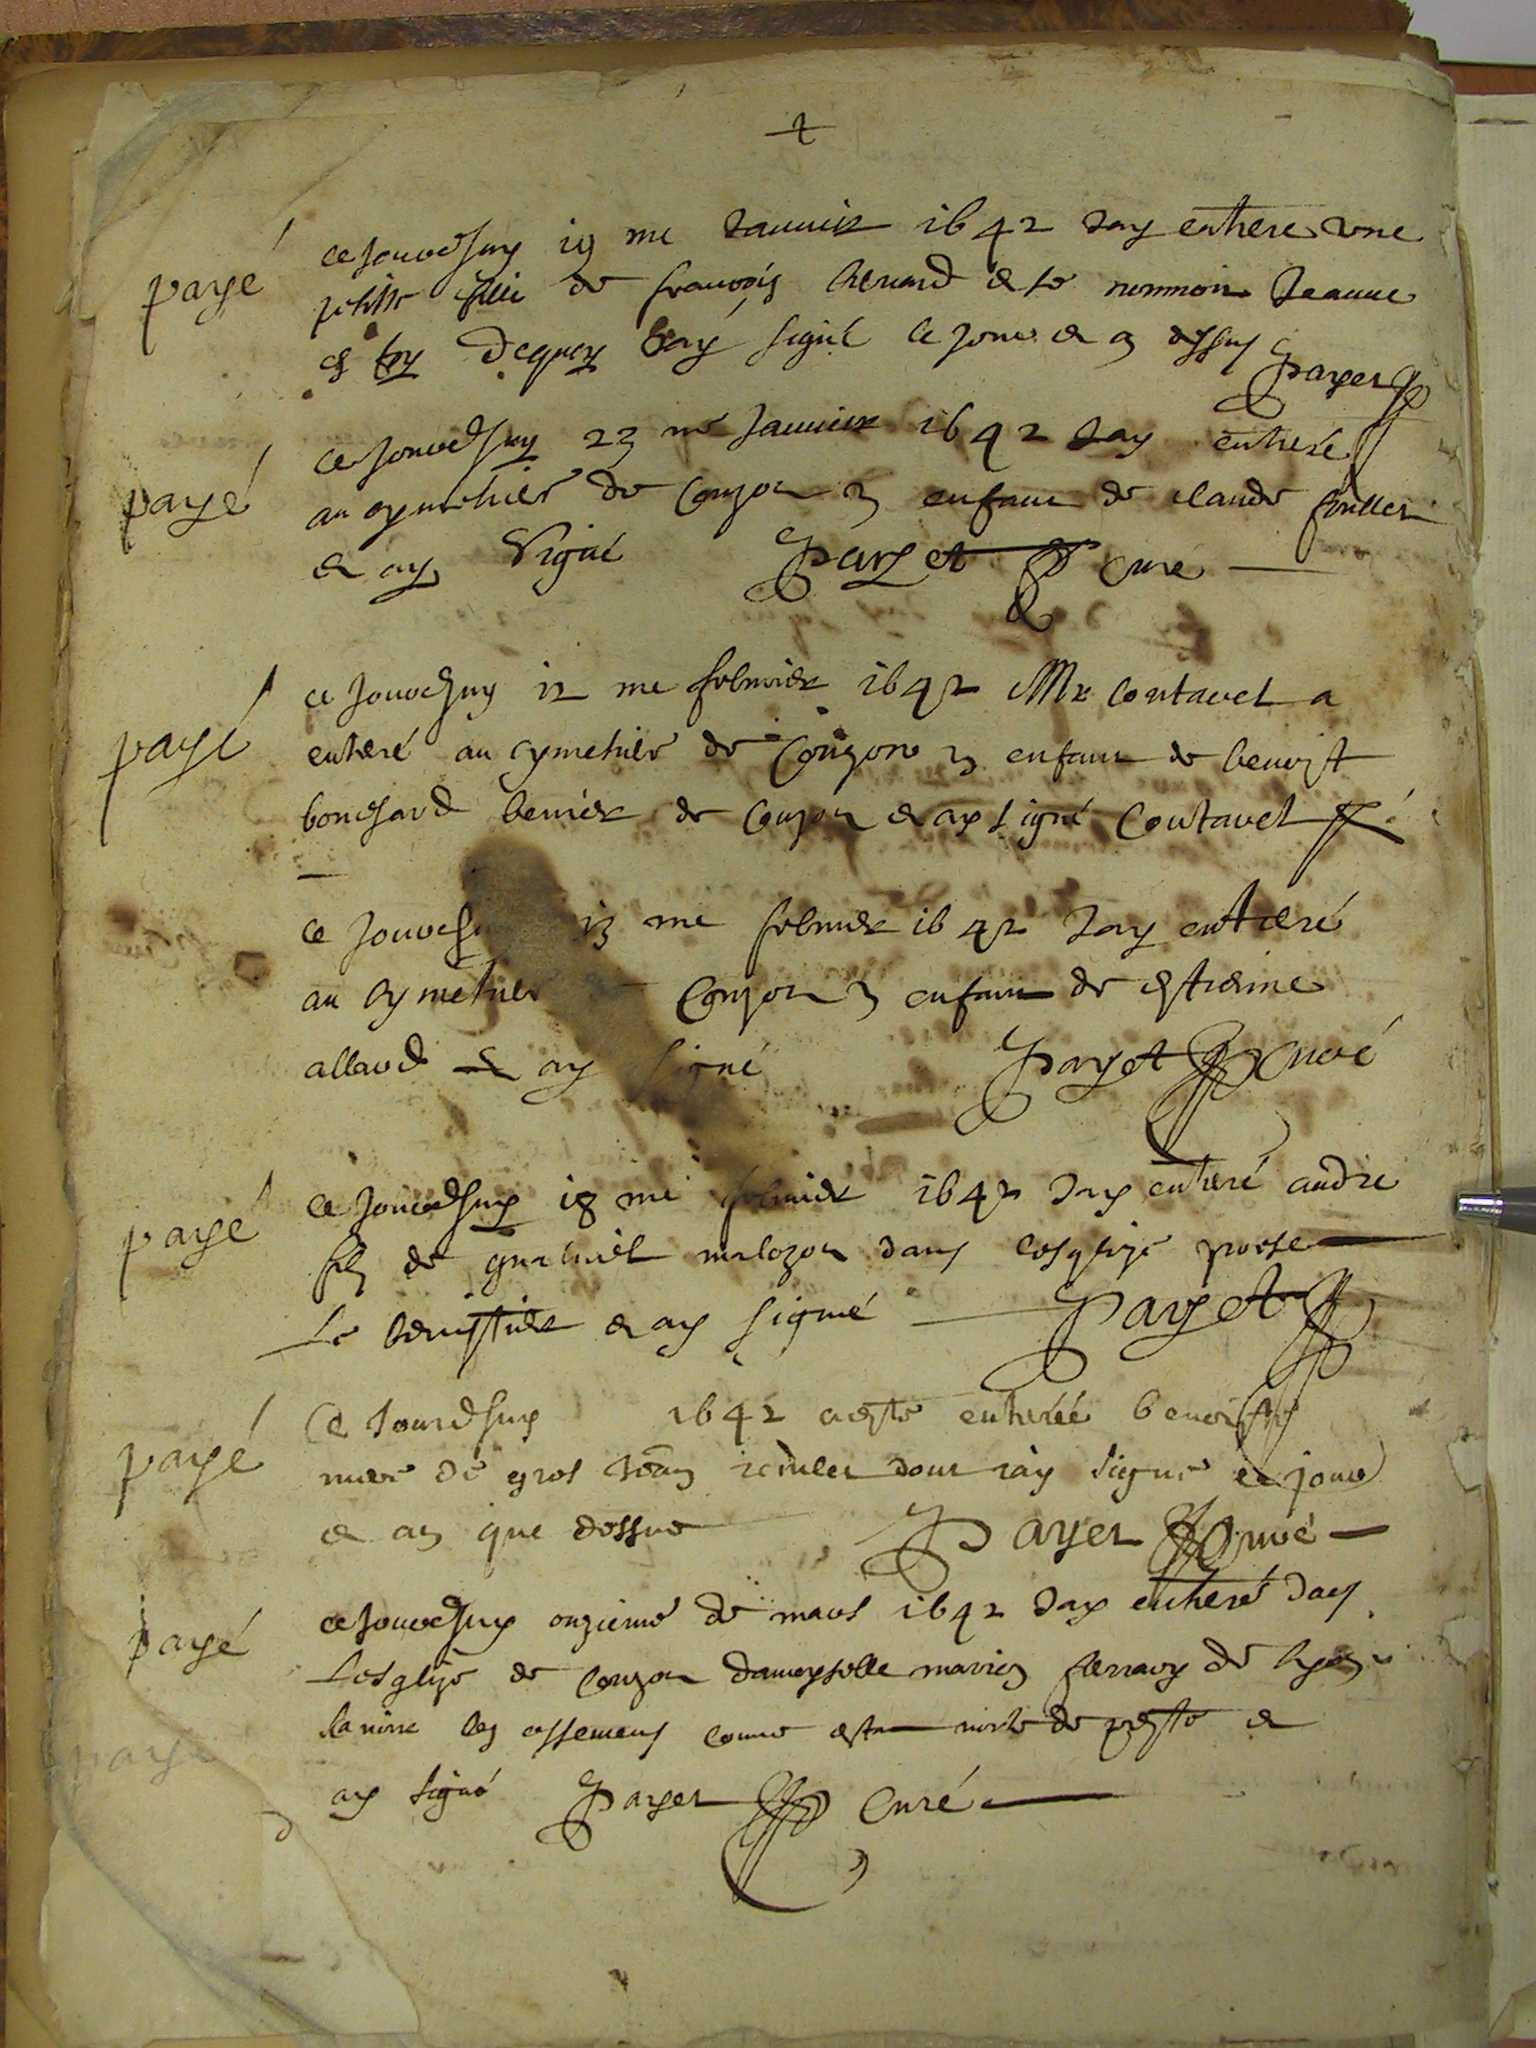 payé
ce jourdhuy 19 me Janvier 1642 Jay enthere une
petitte fille de francois et se nommoit Jeanne
en foy dequoy Jay signé ce jour et an dessus Payet
payé
ce jourdhuy 23 me Janvier 1642 Jay entheré
au cymethiere de Couzon un enfant de claude
et ay signé Payet curé
payé
ce jourdhuy 12 me febvrier 1642 Mr Contavet a
entheré au cymethiere de Couzon un enfant de benoist
bouchard de Couzon et ay signé Contavet
ce jourdhuy 13 me febvrier 1642 Jay entheré
au cymethiere Couzon un enfant de estienne
allard et ay signé Payet curé
payé
ce jourdhuy 18 me febvrier 1642 Jay entheré andre
filz de malozon dans lesglize
et ay signé Payet
payé
Ce Jourdhuy 1642 a este entherée benoiste
mere de gros dont iay signé ce jour
et an que dessus Payet curé
payé
ce jourdhuy onzieme de mars 1642 Jay entheré dans
Lesglize de Couzon damoyselle de lyon
les ossements come estant morte de peste et
ay signé Payet curé